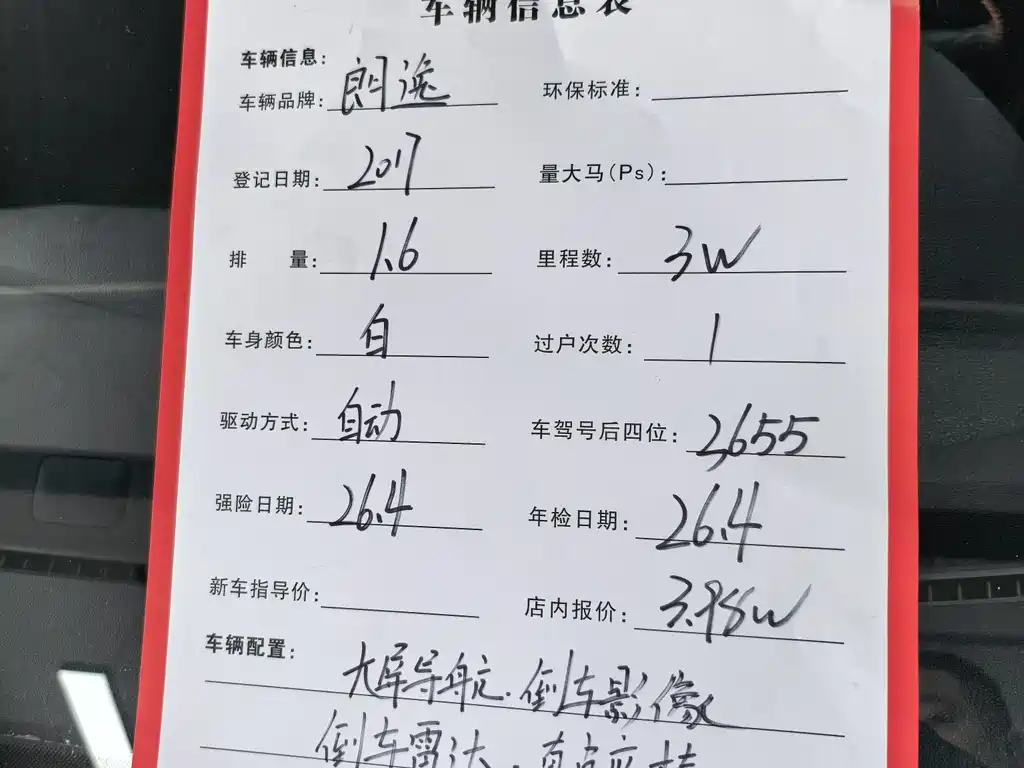 车辆信息表
车辆信息：
车辆品牌：朗逸 环保标准：
登记日期：2017 量大马（Ps）：
排 量：1.6 里程数：3W
车身颜色：白 过户次数：1
驱动方式：自动 车驾号后四位：2655
强险日期：26.4 年检日期：26.4
新车指导价： 店内报价：3.98W
车辆配置：
大屏导航.倒车影像
倒车雷达.